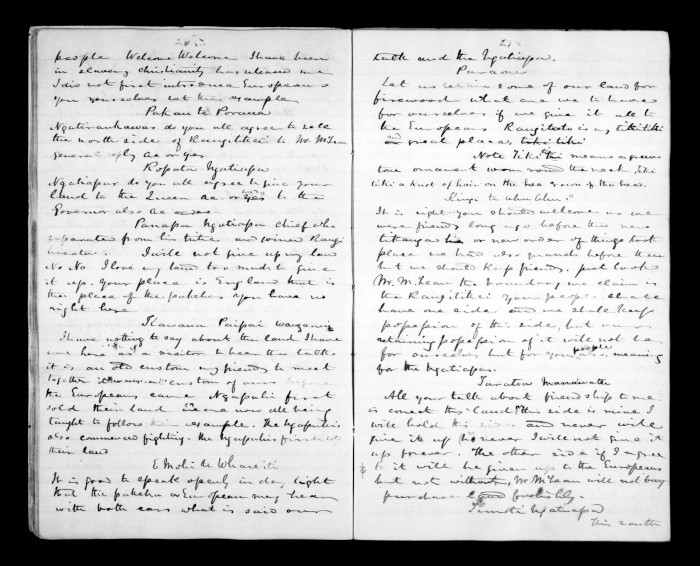 20.
people Welcome Welcome I have been
in slavery Christianity has released me
I did not first introduce Europeans
you yourselves set the example
Pakau te
Ngatiraukawas do you all agree to sell
the north side of Rangitikei to Mr McLean
general reply ae or yes
Ropata Ngatiapa
Ngatiapas do you all agree to give your
land to the Queen ae or yes to the
Governor also ae
Panapa Ngatiapa chief who
separated from his tribe and joined
I will not give up my land
No. No I love my land too much to give
it up. Your place is England that is
the place of the pakehas you have no
right here
Kawana Paipai
I have nothing to say about the land I have
come here as a visitor to hear the talk
it is an old custom my friends to meet
together it was custom of ours before
the Europeans came Ngapuhi first
sold their land we are now all being
taught to follow example. The Ngapuhis
also commenced fighting. the Ngapuhis first sold
their land
te Whareiti
It is good to speak openly in day light
that the pakeha or European may hear
with both ears what is said our
21.
talk and the Ngatiapa.
Paraone
Let us retain some of our land for
firewood what are we to have
for ourselves if we give it all to
the Europeans
great place,
Note Tiki means a green
stone ornament worn round the neck, tiki
tiki a knot of hair on the crown of the head.
Kingi te
It is right you should welcome us we
were friends long ago before the new
or new order of things took
place we had also quarrels before then
but we should keep friends.
Mr. McLean the boundary we claim is
the Rangitikei your people shall
have one side and we shall keep
possession of this side, but our
retaining possession of it will not be
for ourselves but for your people, meaning
for the Ngatiapas.
Taratoa Manawatu
All your talk about friendship to me
is correct this land, this side is mine I
will hold this side and never will
give it up no never I will not give it
up forever. The other side if I agree
to it will be given up to the Europeans
but not without, Mr McLean will not buy
purchase land foolishly
Ngatiapa